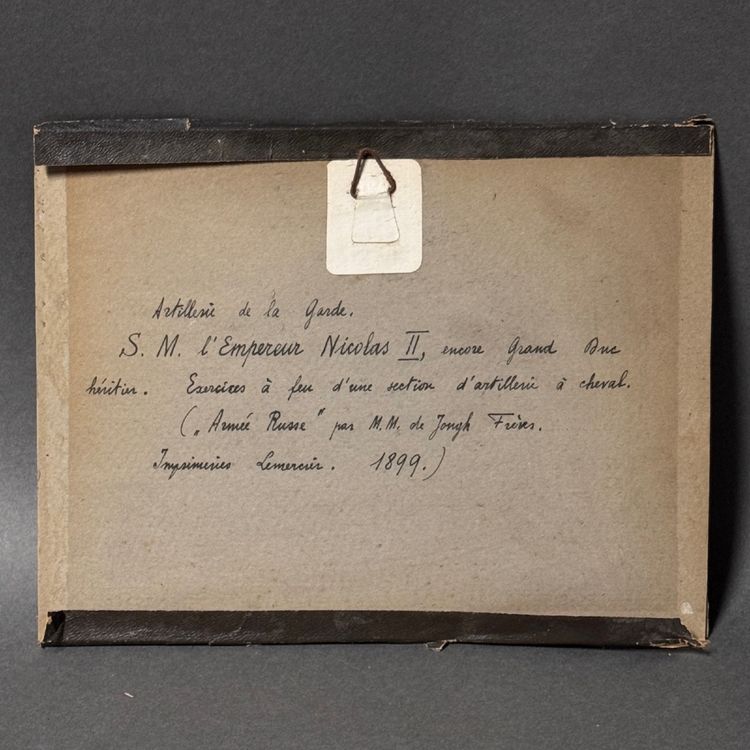 Artillerie de la Garde.
S. M. l'Empereur Nicolas II, encore Grand Duc
héritier. Exercices à feu d'une section d'artillerie à cheval.
(„Armée Russe" par M.M. de Jongh Frères.
Imprimeries Lemercier. 1899.)